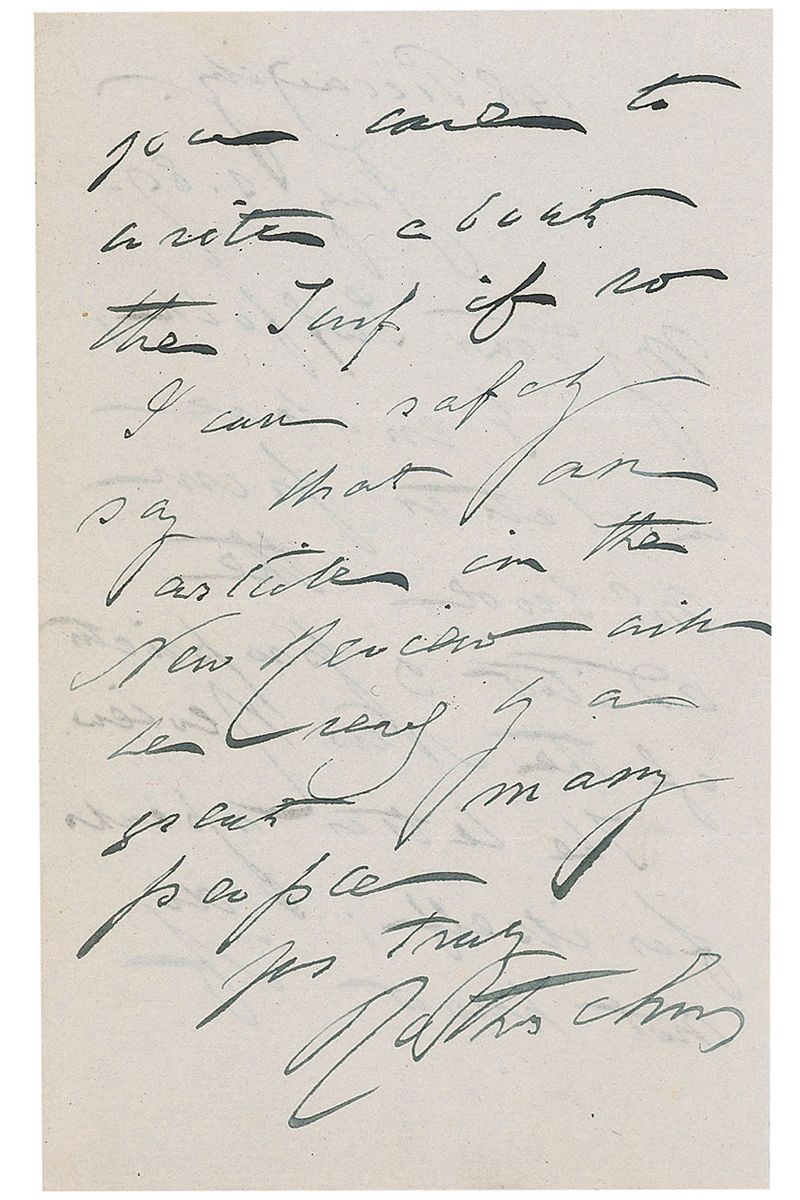 you care to
write about
the Turf if so
I can safely
say that an
article in the
New Review will
be read by a
great many
people
yrs truly